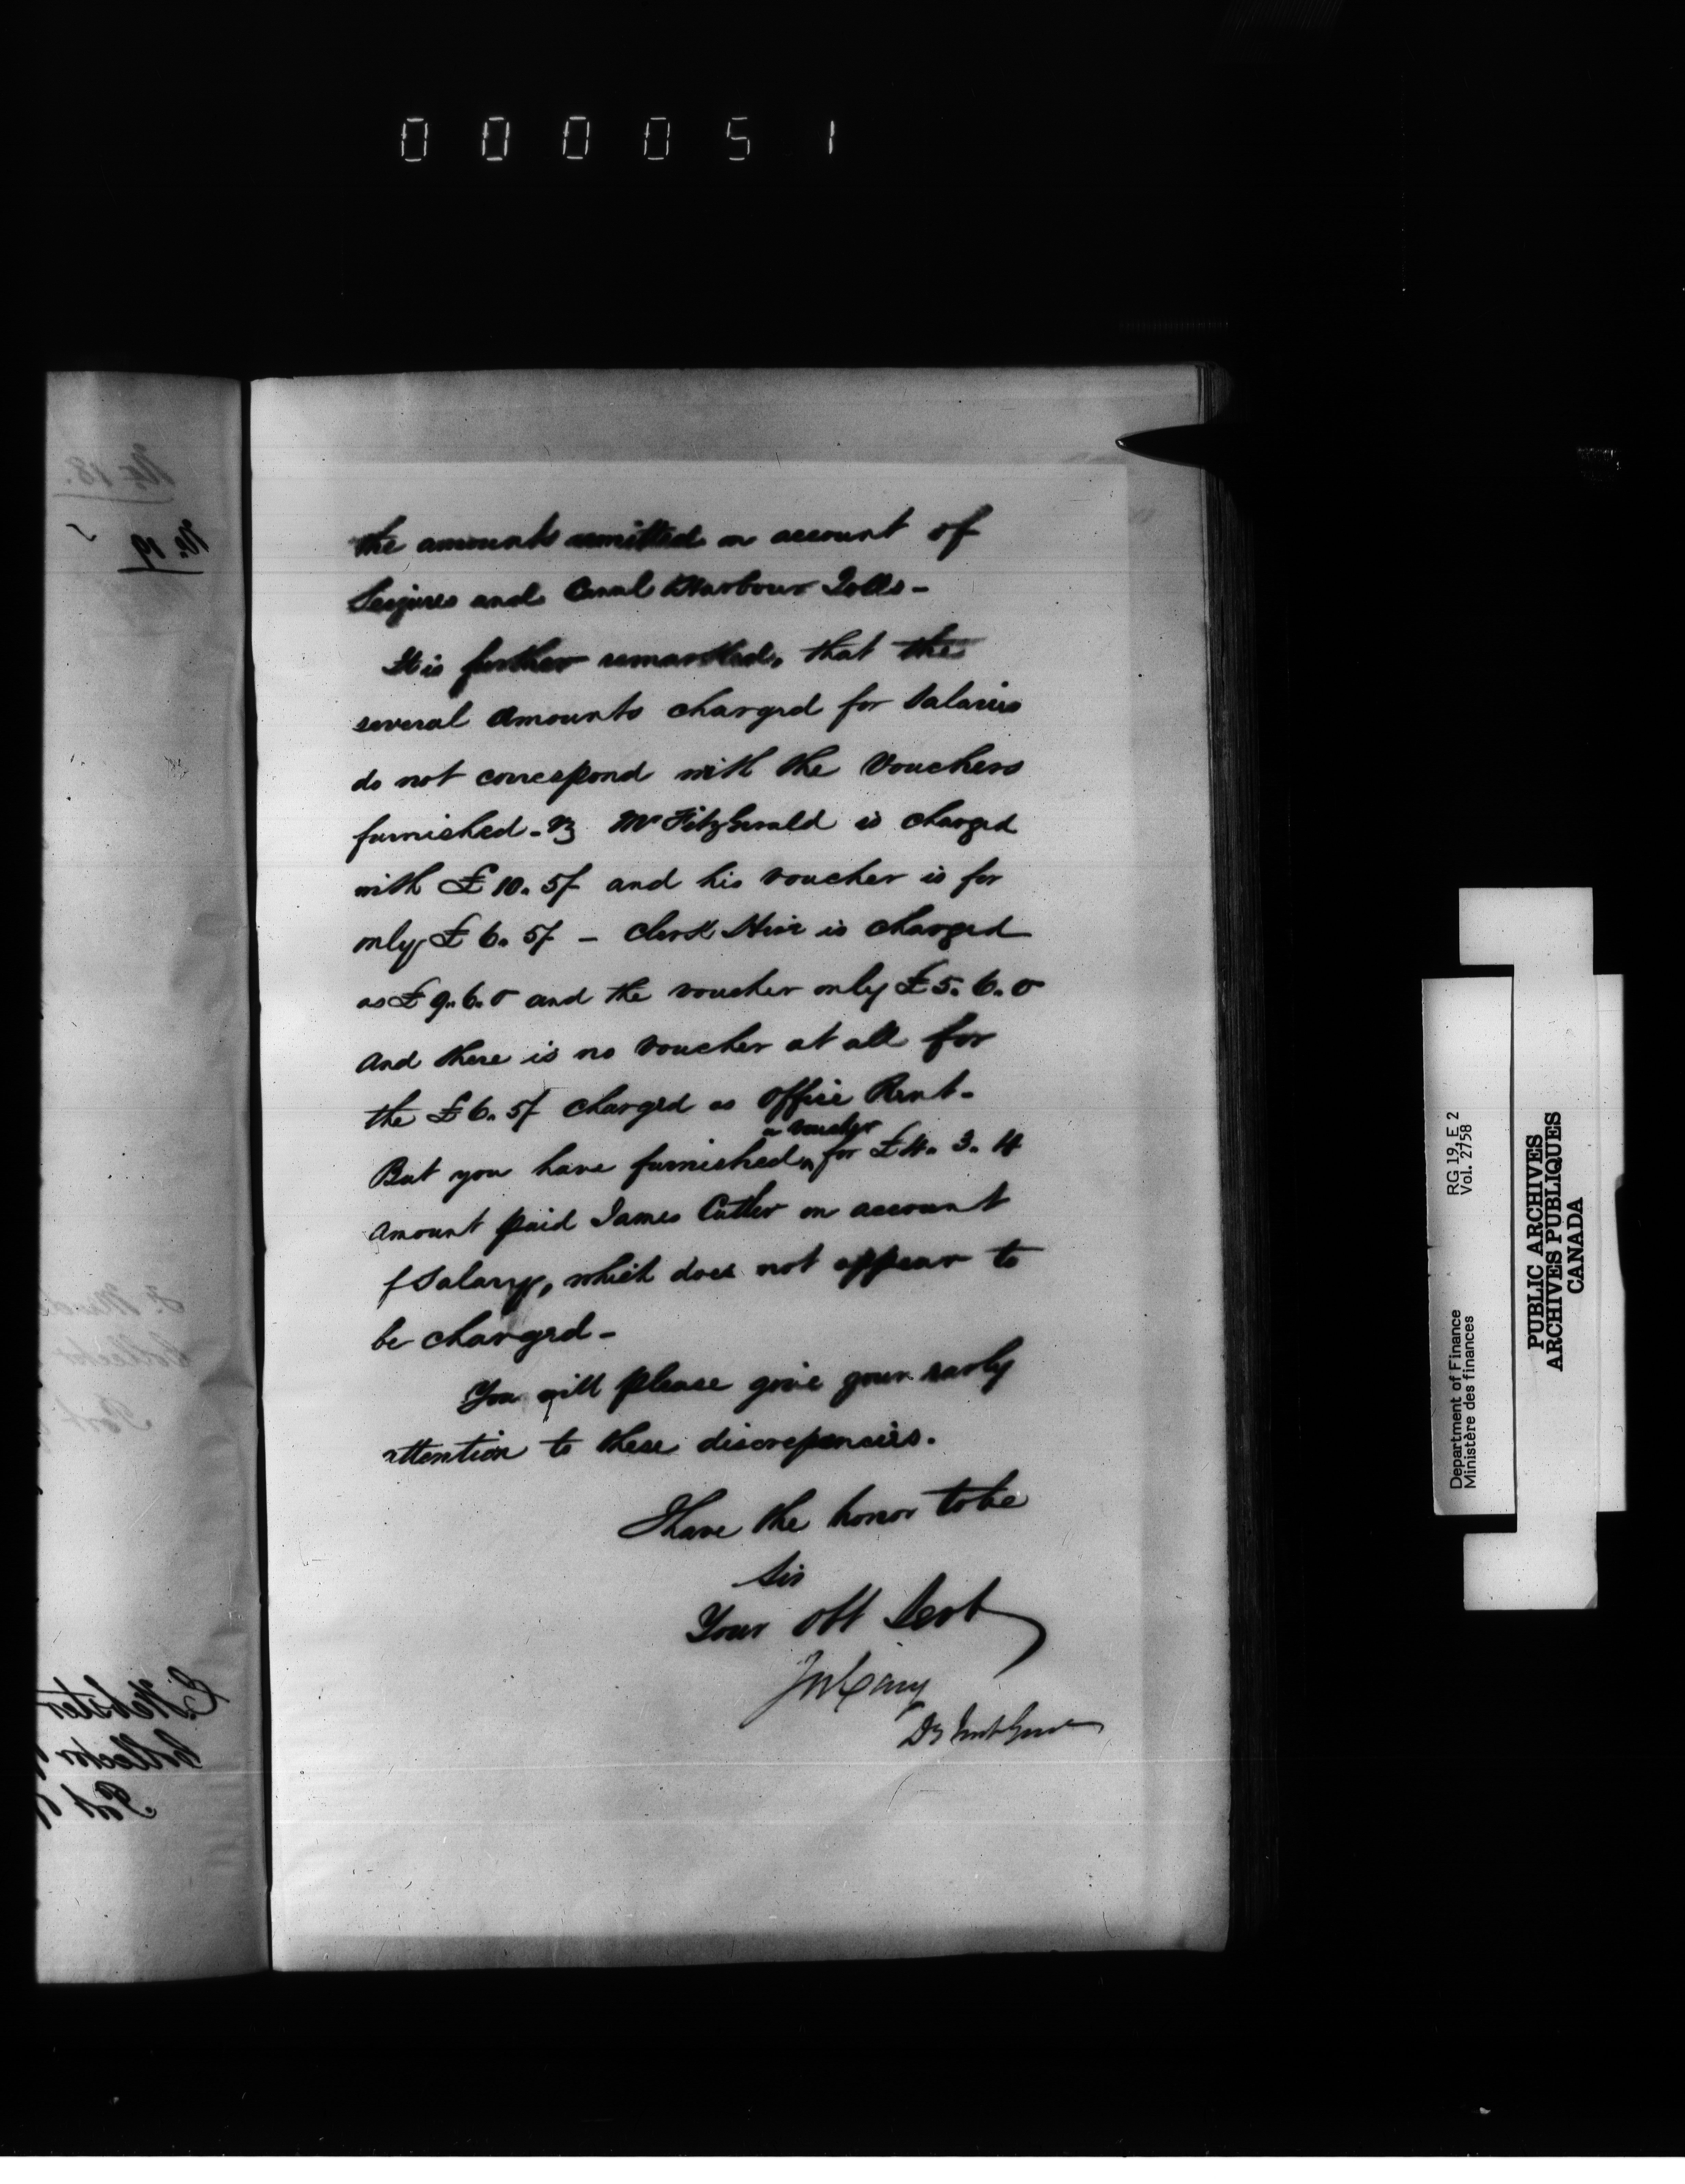 000051
the amounts remitted on account of
Seizures and Canal & Harbour Tolls -
It is further remarked, that the
several amounts charged for Salaries
do not correspond with the Vouchers
furnished - Mr FitzGerald is charged
with £10. 5/ and his voucher is for
only £6. 5/ - Clerk is charged
as £9. 6. 0 and the voucher only £5. 6. 0
and there is no voucher at all for
the £6. 5/ charged as Office Rent -
a voucher
But you have furnished ^ for £4. 3. 4
amount paid James Cutler on account
of Salary, which does not appear to
be charged -
You will please give your early
attention to these discrepancies.
I have the honor to be
Sir
Your Obt Servt
JW Cary
Dy Inst Genl
No. 18.
No. 19
Collector
Port
E. Webster
Collector
Port
RG 19, E 2
Vol. 2758
Department of Finance
Ministère des finances
PUBLIC ARCHIVES
ARCHIVES PUBLIQUES
CANADA